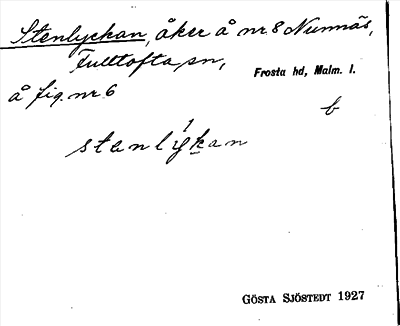 Stenlyckan, åker å nr 8 Nunnäs,
Fulltofta sn,
Frosta hd, Malm. l.
å fig. nr 6
b
stenlykan
GÖSTA SJÖSTEDT 1927